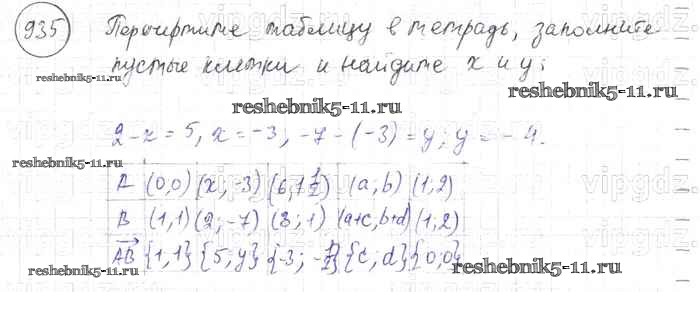 935 Перечертите таблицу в тетрадь, заполните
vipgdz.
пустые клетки и найдите x и y:
reshebnik5-11.ru
reshebnik5-11.ru
2-x=5, x=-3; -7-(-3)=y; y=-4.
reshebnik5-11.ru
vipgdz.
A (0,0) (x; -3) (6,1 1/2) (a; b) (1,2)
B (1,1) (2; -7) (3; 1) (a+c, b+d) (1,2)
AB {1,1} {5; y} {-3; -1/2} {c; d} {0;0}
reshebnik5-11.ru
reshebnik5-11.ru
vipgdz.